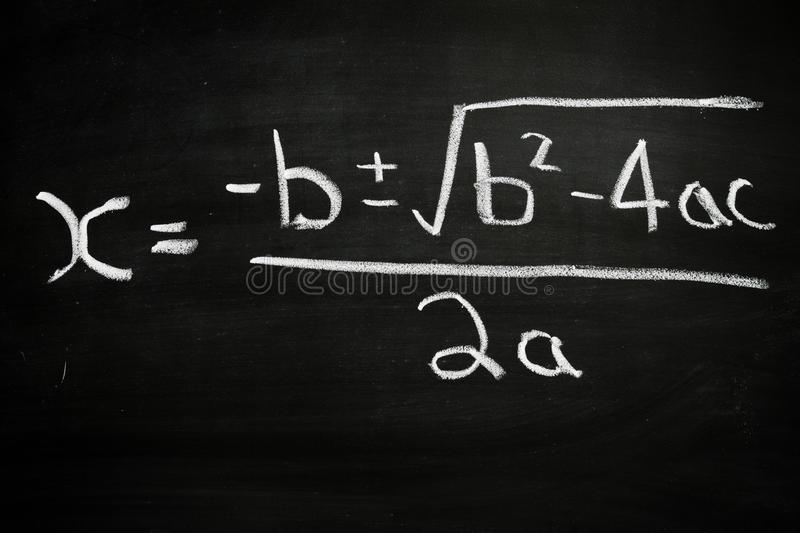 x = -b ± √b² - 4ac
2a
dreamstime